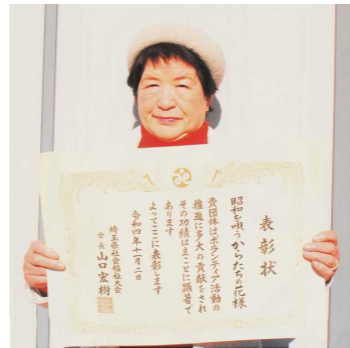 表彰状
昭和を唄うからたちの花様
貴団体はボランティア活動の
推進に多大の貢献をされ
その功績はまことに顕著で
あります
よってここに表彰します
令和四年十一月二日
埼玉県社会福祉大会
会長 山口宏樹